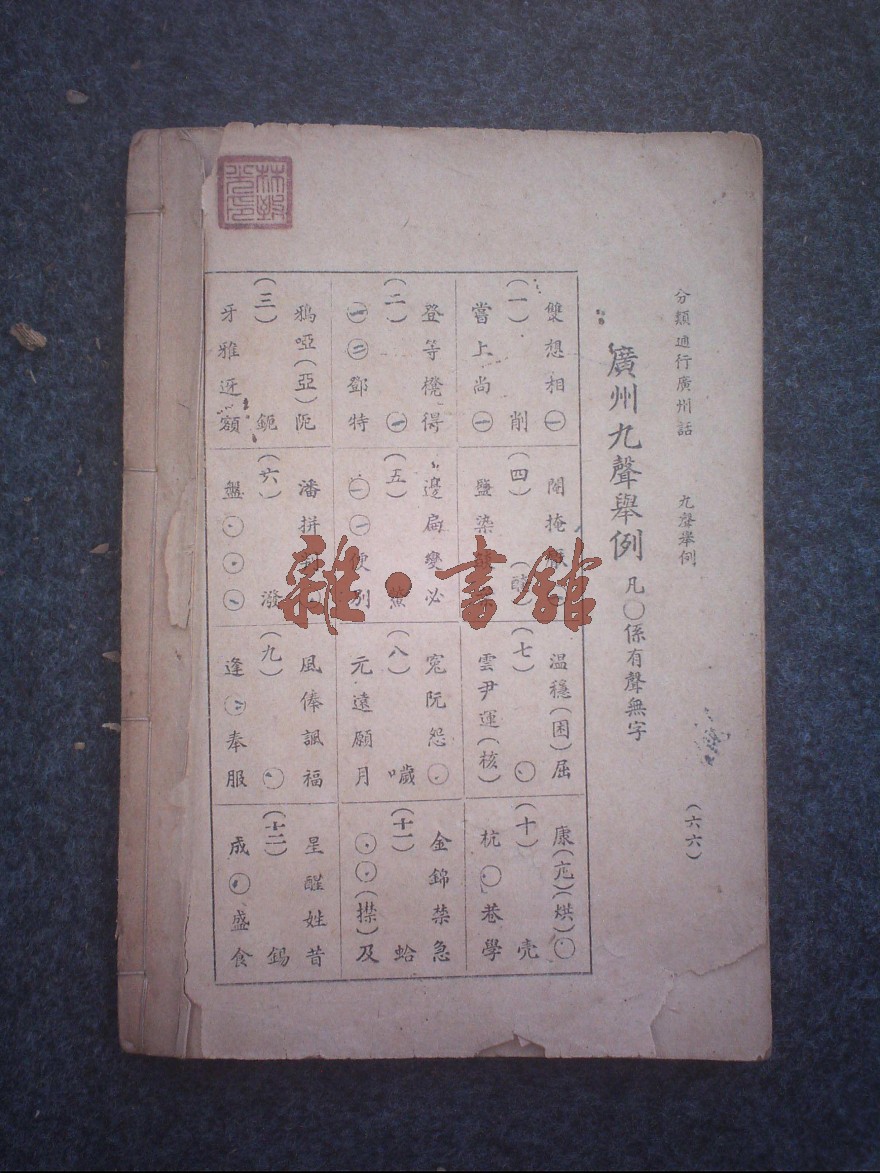 分類通行廣州話 九聲舉例 (六六)
廣州九聲舉例 凡〇係有聲無字
雙想相㊀
(一) 削
當上尚㊀
登等櫈得
(二) ㊀
㊀㊁鄧特
鴉啞(亞)阨
(三) 鈪
牙雅迓額
閹掩
(四)
鹽染
邊扁變必
(五)
便別
潘拼
(六) 潑
盤
溫穩(困)屈
(七) 〇
雲尹運(核)
寃阮怨〇
(八) 噦
元遠願月
風俸諷福
(九) 〇
逢〇奉服
康(𠅙)(烘)〇
(十) 壳
杭〇巷學
金錦禁急
(十一) 蛤
〇〇(㩒)及
星醒姓昔
(十二) 錫
成〇盛食
雜·書館